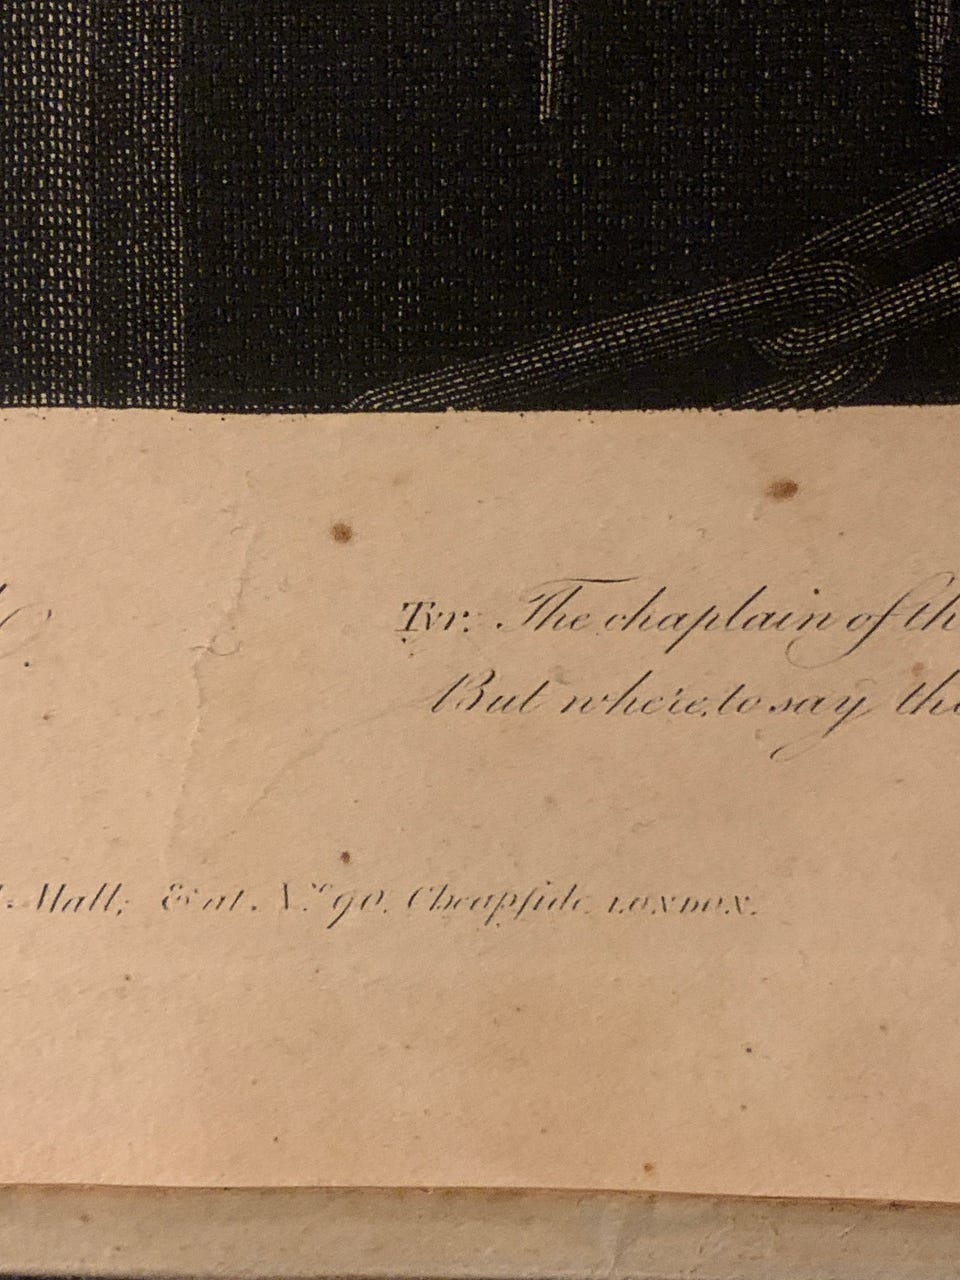 Tyr: The chaplain of th
But where, to say the
Mall; & at No 90, Cheapside LONDON.